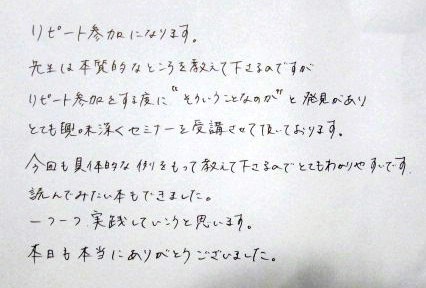 リピート参加になります。
先生は本質的なところを教えて下さるのですが
リピート参加をする度に"そういうことなのか"と発見があり
とても興味深くセミナーを受講させて頂いております。
今回も具体的な例をもって教えて下さるのでとてもわかりやすいです。
読んでみたい本もできました。
一つ一つ、実践していこうと思います。
本日も本当にありがとうございました。